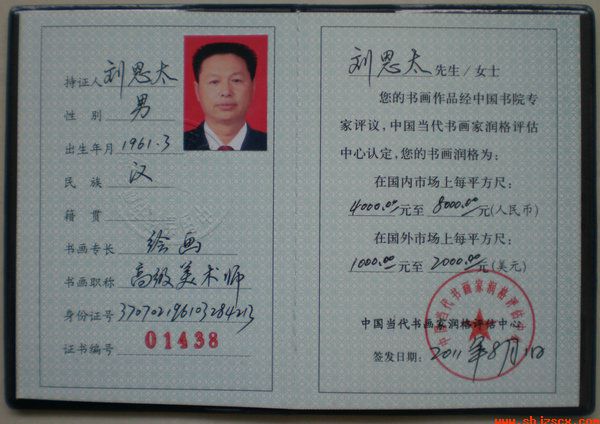 持证人 刘恩太
性 别 男
出生年月 1961.3
民 族 汉
籍 贯
书画专长 绘画
书画职称 高级美术师
身份证号 370702196103284213
证书编号 01438
刘恩太 先生/女士
您的书画作品经中国书院专
家评议，中国当代书画家润格评估
中心认定，您的书画润格为：
在国内市场上每平方尺：
4000.00元至 8000.00元(人民币)
在国外市场上每平方尺：
1000.00元至 2000.00元(美元)
中国当代书画家润格评估中心
中国当代书画家润格评估中心
签发日期：2011年8月1日
www.shjzscx.com